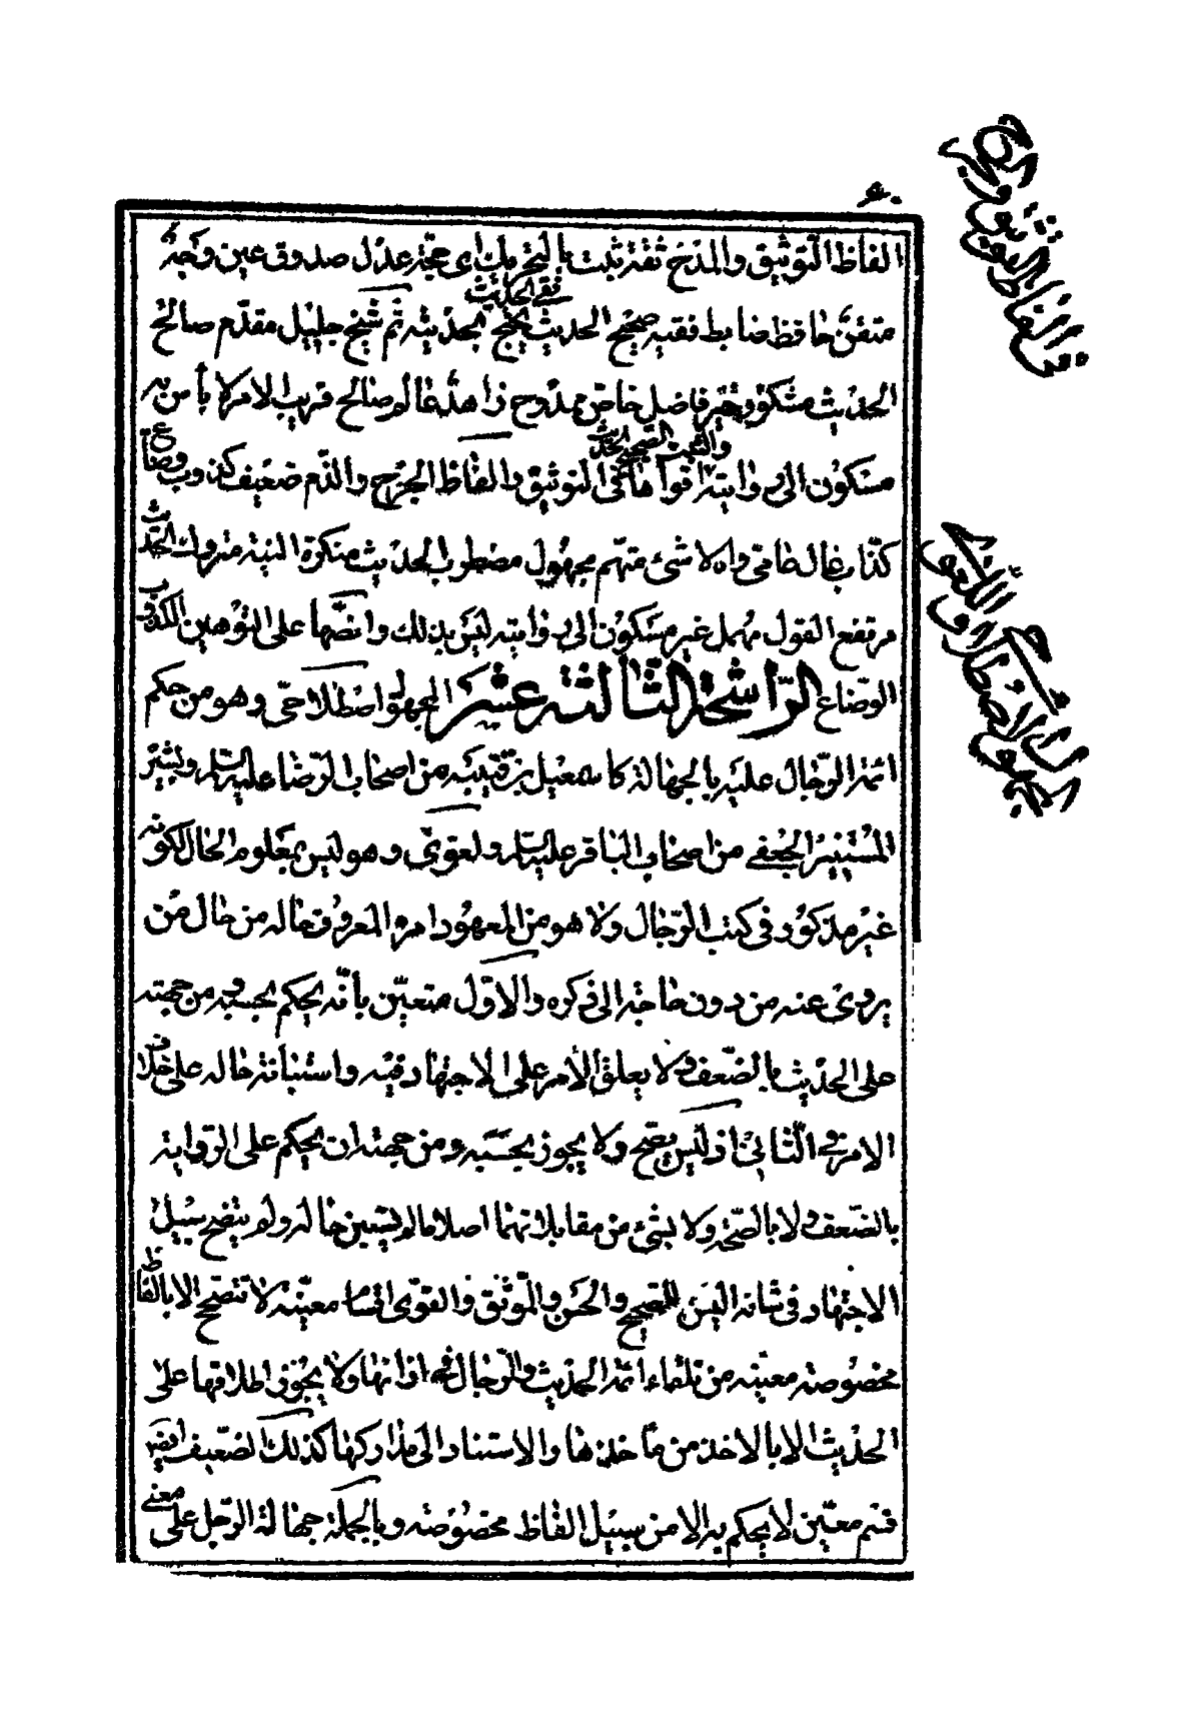 ٦٠
في الفاظ التوثيق والجرح
الفاظ التوثيق والمدح ثقة ثبت بالتحريك اى حجة عدل صدوق عين وجه
نقى الحديث
متقن حافظ ضابط فقيه صحيح الحديث يحتج بحديثه ثم شيخ جليل مقدم صالح
الحديث مشكور خير فاضل خاص ممدوح زاهد عالم صالح قريب الامر لا بأس به
والثبت الصحيح الحديث
مسكون الى روايته اقواها فى التوثيق والفاظ الجرح والذم ضعيف كذوب وضاع
كذاب غال عامى واه لا شئ متهم مجهول مضطرب الحديث منكره لينه متروك الحديث
مرتفع القول مهمل غير مسكون الى روايته ليس بذلك وانصها على التوهين الكذوب
الوضاع الراشحة الثالثة عشر المجهول اصطلاحى وهو من حكم
المجهول الاصطلاحى واللغوى
ائمة الرجال عليه بالجهالة كاسمعيل بن قتيبة من اصحاب الرضا عليه السلم وبشير
المستنير الجعفى من اصحاب الباقر عليه السلم ولغوى وهو ليس بمعلوم الحال لكونه
غير مذكور فى كتب الرجال ولا هو من المعهود امره المعروف حاله من حال من
يروى عنه من دون حاجة الى ذكره والاول متعين بأنه يحكم بحسبه ومن جهته
على الحديث بالضعف ولا يعلق الامر على الاجتهاد فيه واستبانة حاله على خلاف
الامر فى الثانى اذ ليس يصح ولا يجوز بحسبه ومن جهته ان يحكم على الرواية
بالضعف ولا بالصحة ولا بشئ من مقابلاتهما اصلا ما لم يتبين حاله ولم يتضح سبيل
الاجتهاد فى شانه اليس الصحيح والحسن والموثق والقوى اقساما معينة لا تتصحح الا بالفاظ
مخصوصة معينة من تلقاء ائمة الحديث والرجال فى ازائها ولا يجوز اطلاقها على
الحديث الا بالاخذ من مأخذها والاستناد الى مداركها كذلك الضعيف ايضا
قسم معين لا يحكم به الا من سبيل الفاظ مخصوصة وبالجملة جهالة الرجل على معنى